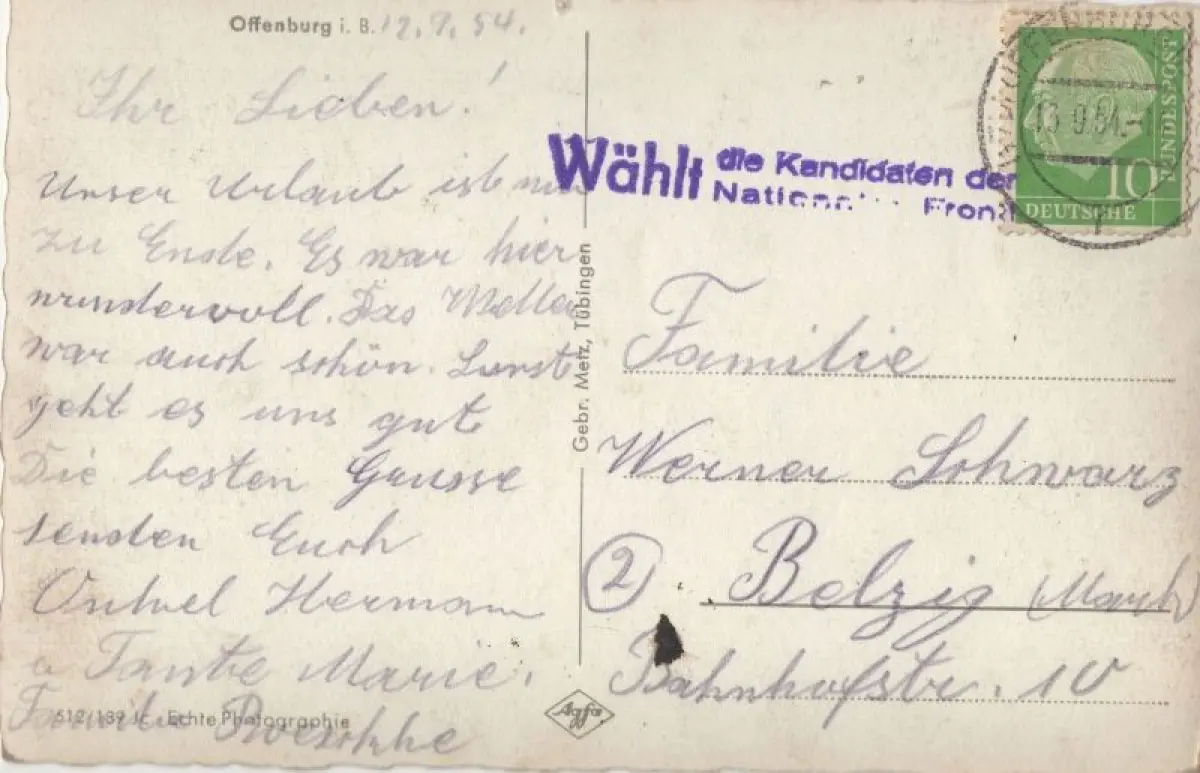 Offenburg i. B. 12. 9. 54.
Ihr Lieben!
Unser Urlaub ist nun
zu Ende. Es war hier
wundervoll. Das Wetter
war auch schön. Sonst
geht es uns gut
Die besten Grüsse
senden Euch
Onkel Hermann
u Tante Marie.
Familie
512/189 Jc Echte Photographie
Gebr. Metz, Tübingen
Agfa
Wählt die Kandidaten der
Nationalen Front
13.9.54.
10
DEUTSCHE
BUNDESPOST
Familie
Werner Schwarz
2 Belzig (Mark)
Bahnhofstr. 10